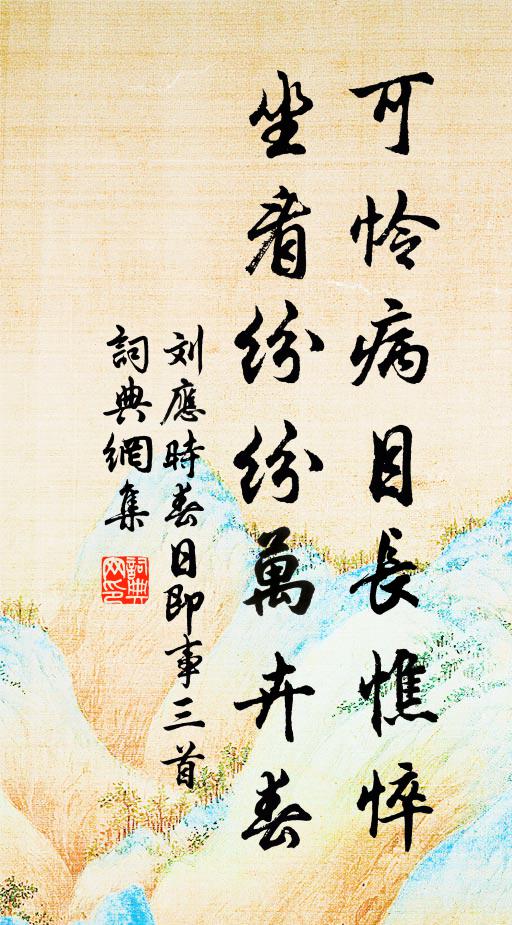 可怜病目長憔悴
坐看紛紛萬卉春
刘應時春日即事三首
詞典網集
詞典网印